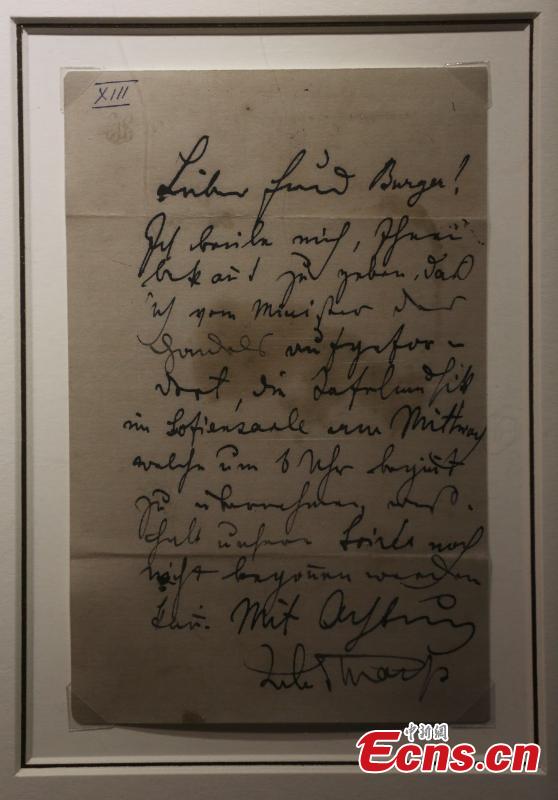 XIII
Lieber Freund Burger!
Ich beeile mich, Ihnen
bekannt zu geben, daß
ich vom Minister des
Handels aufgefor-
dert, die Tafelmusik
im Sofiensaale am Mittwoch
welche um 6 Uhr beginnt
zu übernehmen, weß-
halb unsere Soirée noch
nicht begonnen werden
kann. Mit Achtung
Joh Strauß
中新網
Ecns.cn